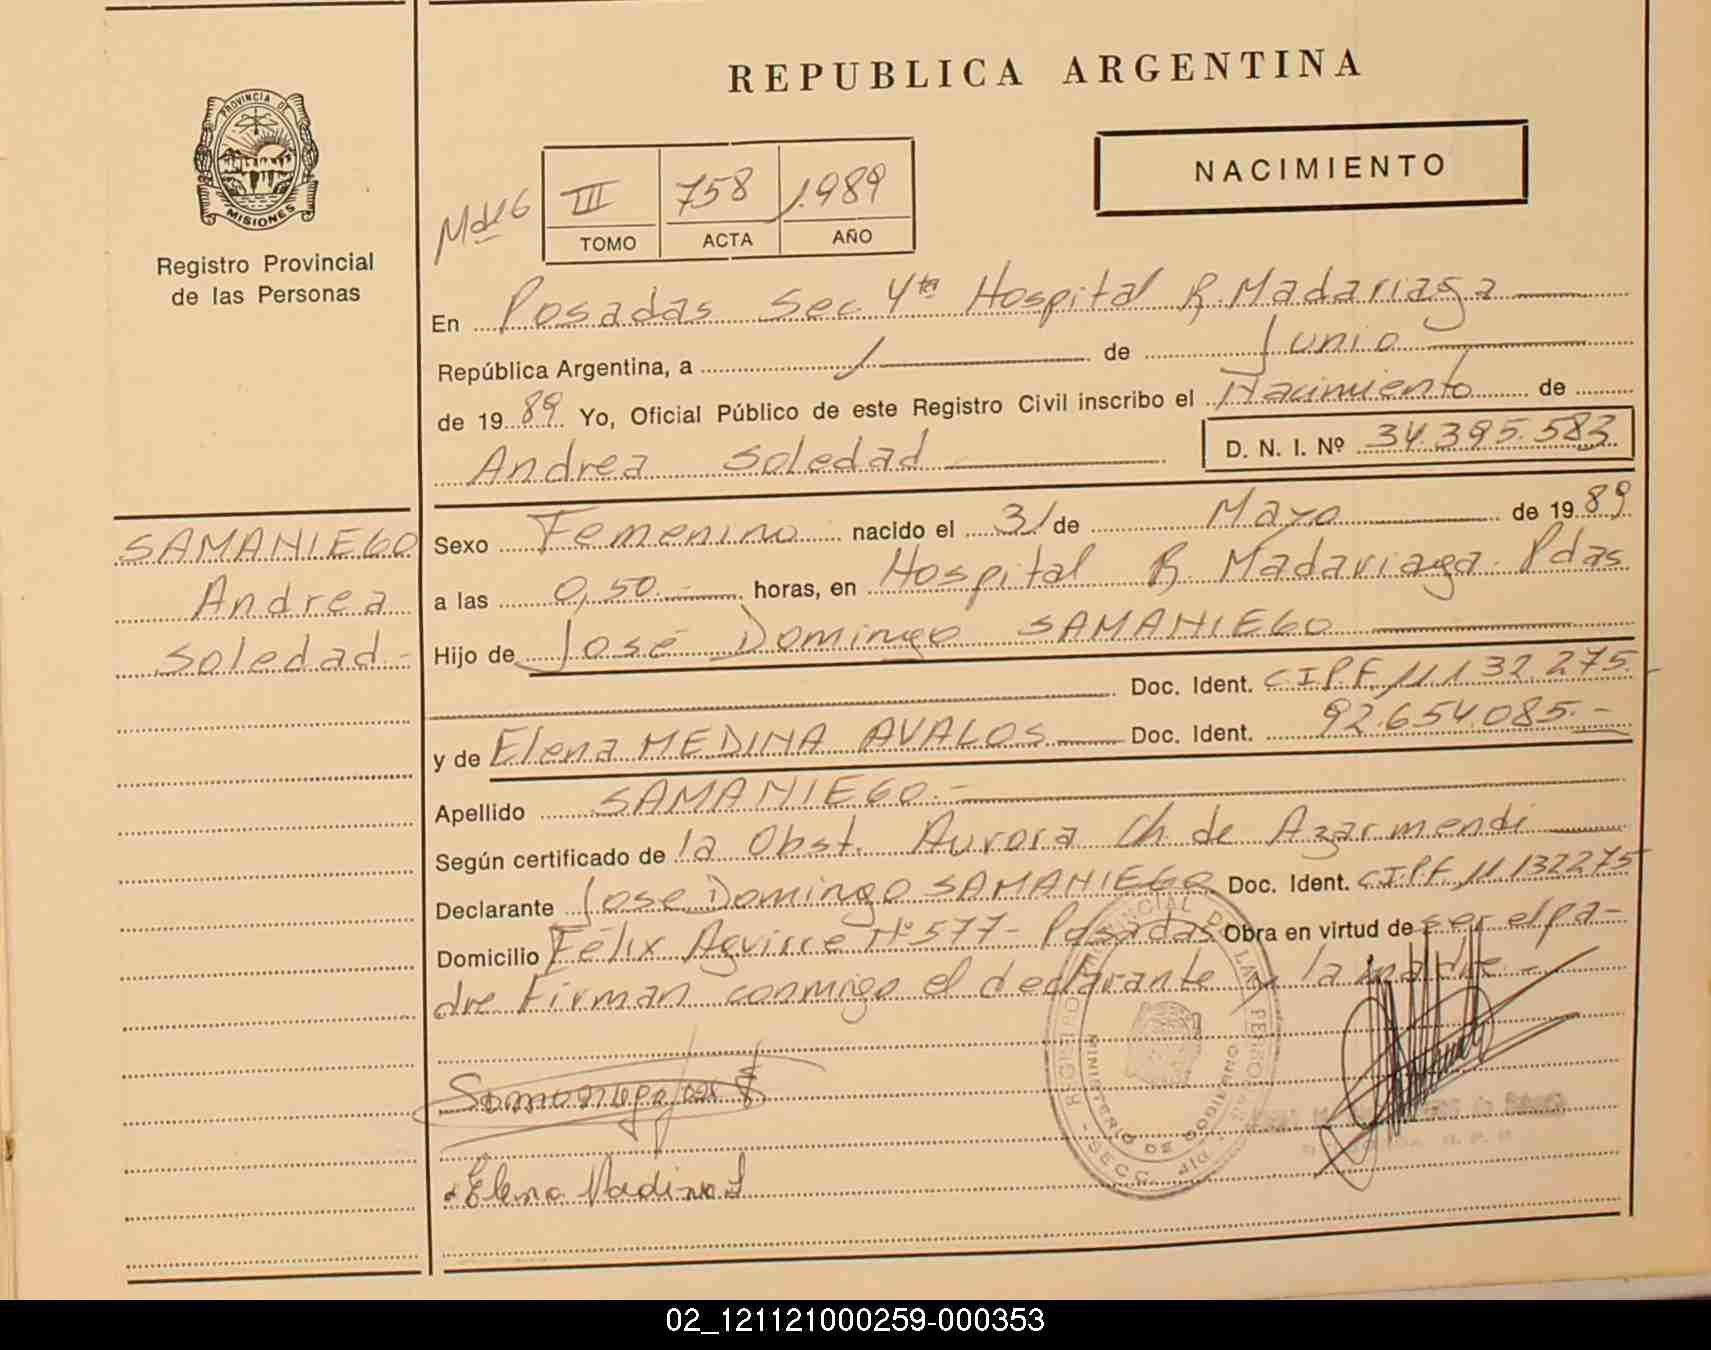 REPUBLICA ARGENTINA
PROVINCIA DE
MISIONES
Registro Provincial
de las Personas
NACIMIENTO
III 758 1.989
TOMO ACTA AÑO
En Posadas Sec. 4ta Hospital R. Madariaga
República Argentina, a 1 de Junio
de 19 89 Yo, Oficial Público de este Registro Civil inscribo el Nacimiento de
Andrea Soledad D. N. I. Nº 34.395.583
SAMANIEGO
Andrea
Soledad -
Sexo Femenino nacido el 31 de Mayo de 19 89
a las 0,50.- horas, en Hospital R. Madariaga Pdas
Hijo de José Domingo SAMANIEGO
Doc. Ident. C.I.P.F. 11.132.275.-
y de Elena MEDINA AVALOS Doc. Ident. 92.654.085.-
Apellido SAMANIEGO.-
Según certificado de la Obst. Aurora Ch. de Azarmendi
Declarante José Domingo SAMANIEGO Doc. Ident. C.I.P.F. 11.132275
Domicilio Félix Aguirre Nº 577- Posadas Obra en virtud de ser el pa-
dre Firman conmigo el declarante y la madre.-
REGISTRO PROVINCIAL DE LAS PERSONAS
MINISTERIO DE GOBIERNO
Elena
02_121121000259-000353